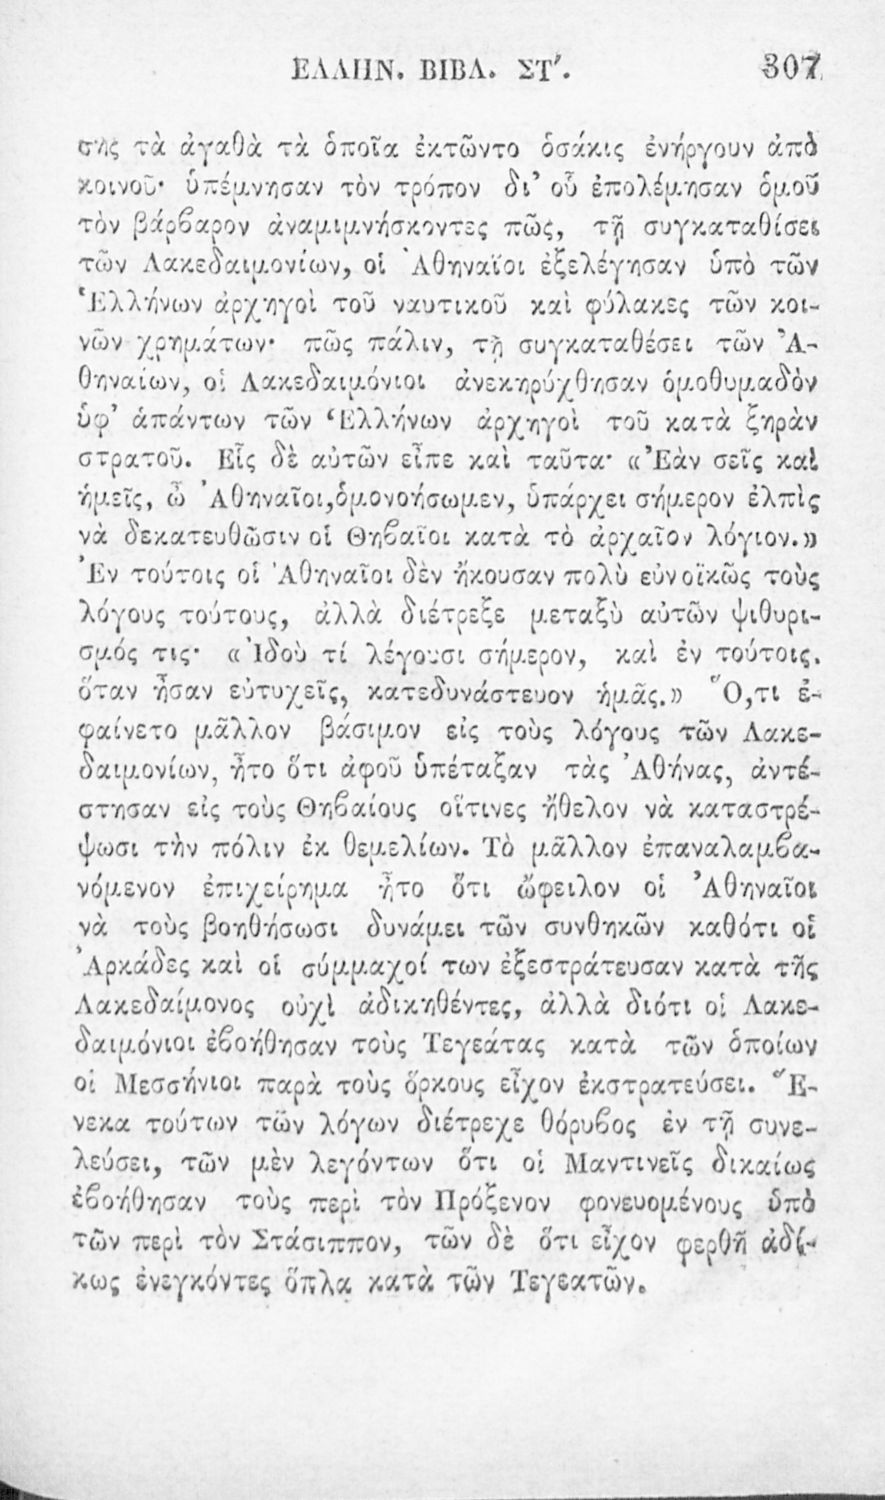 ΕΛΛΗΝ. ΒΙΒΛ. ΣΤ'. 307
σης τὰ ἀγαθὰ τὰ ὁποῖα ἐκτῶντο ὁσάκις ἐνήργουν ἀπὸ
κοινοῦ· ὑπέμνησαν τὸν τρόπον δι' οὗ ἐπολέμησαν ὁμοῦ
τὸν βάρβαρον ἀναμιμνήσκοντες πῶς, τῇ συγκαταθίσει
τῶν Λακεδαιμονίων, οἱ Ἀθηναῖοι ἐξελέγησαν ὑπὸ τῶν
Ἑλλήνων ἀρχηγοὶ τοῦ ναυτικοῦ καὶ φύλακες τῶν κοι-
νῶν χρημάτων· πῶς πάλιν, τῇ συγκαταθέσει τῶν Ἀ-
θηναίων, οἱ Λακεδαιμόνιοι ἀνεκηρύχθησαν ὁμοθυμαδὸν
ὑφ' ἁπάντων τῶν Ἑλλήνων ἀρχηγοὶ τοῦ κατὰ ξηρὰν
στρατοῦ. Εἷς δὲ αὐτῶν εἶπε καὶ ταῦτα· «Ἐὰν σεῖς καὶ
ἡμεῖς, ὦ Ἀθηναῖοι,ὁμονοήσωμεν, ὑπάρχει σήμερον ἐλπὶς
νὰ δεκατευθῶσιν οἱ Θηβαῖοι κατὰ τὸ ἀρχαῖον λόγιον.»
Ἐν τούτοις οἱ Ἀθηναῖοι δὲν ἤκουσαν πολὺ εὐνοϊκῶς τοὺς
λόγους τούτους, ἀλλὰ διέτρεξε μεταξὺ αὐτῶν ψιθυρι-
σμός τις· «Ἰδοὺ τί λέγουσι σήμερον, καὶ ἐν τούτοις,
ὅταν ἦσαν εὐτυχεῖς, κατεδυνάστευον ἡμᾶς.» Ὅ,τι ἐ-
φαίνετο μᾶλλον βάσιμον εἰς τοὺς λόγους τῶν Λακε-
δαιμονίων, ἦτο ὅτι ἀφοῦ ὑπέταξαν τὰς Ἀθήνας, ἀντέ-
στησαν εἰς τοὺς Θηβαίους οἵτινες ἤθελον νὰ καταστρέ-
ψωσι τὴν πόλιν ἐκ θεμελίων. Τὸ μᾶλλον ἐπαναλαμβα-
νόμενον ἐπιχείρημα ἦτο ὅτι ὤφειλον οἱ Ἀθηναῖοι
νὰ τοὺς βοηθήσωσι δυνάμει τῶν συνθηκῶν καθότι οἱ
Ἀρκάδες καὶ οἱ σύμμαχοί των ἐξεστράτευσαν κατὰ τῆς
Λακεδαίμονος οὐχὶ ἀδικηθέντες, ἀλλὰ διότι οἱ Λακε-
δαιμόνιοι ἐβοήθησαν τοὺς Τεγεάτας κατὰ τῶν ὁποίων
οἱ Μεσσήνιοι παρὰ τοὺς ὅρκους εἶχον ἐκστρατεύσει. Ἕ-
νεκα τούτων τῶν λόγων διέτρεχε θόρυβος ἐν τῇ συνε-
λεύσει, τῶν μὲν λεγόντων ὅτι οἱ Μαντινεῖς δικαίως
ἐβοήθησαν τοὺς περὶ τὸν Πρόξενον φονευομένους ὑπὸ
τῶν περὶ τὸν Στάσιππον, τῶν δὲ ὅτι εἶχον φερθῆ ἀδί-
κως ἐνεγκόντες ὅπλα κατὰ τῶν Τεγεατῶν.